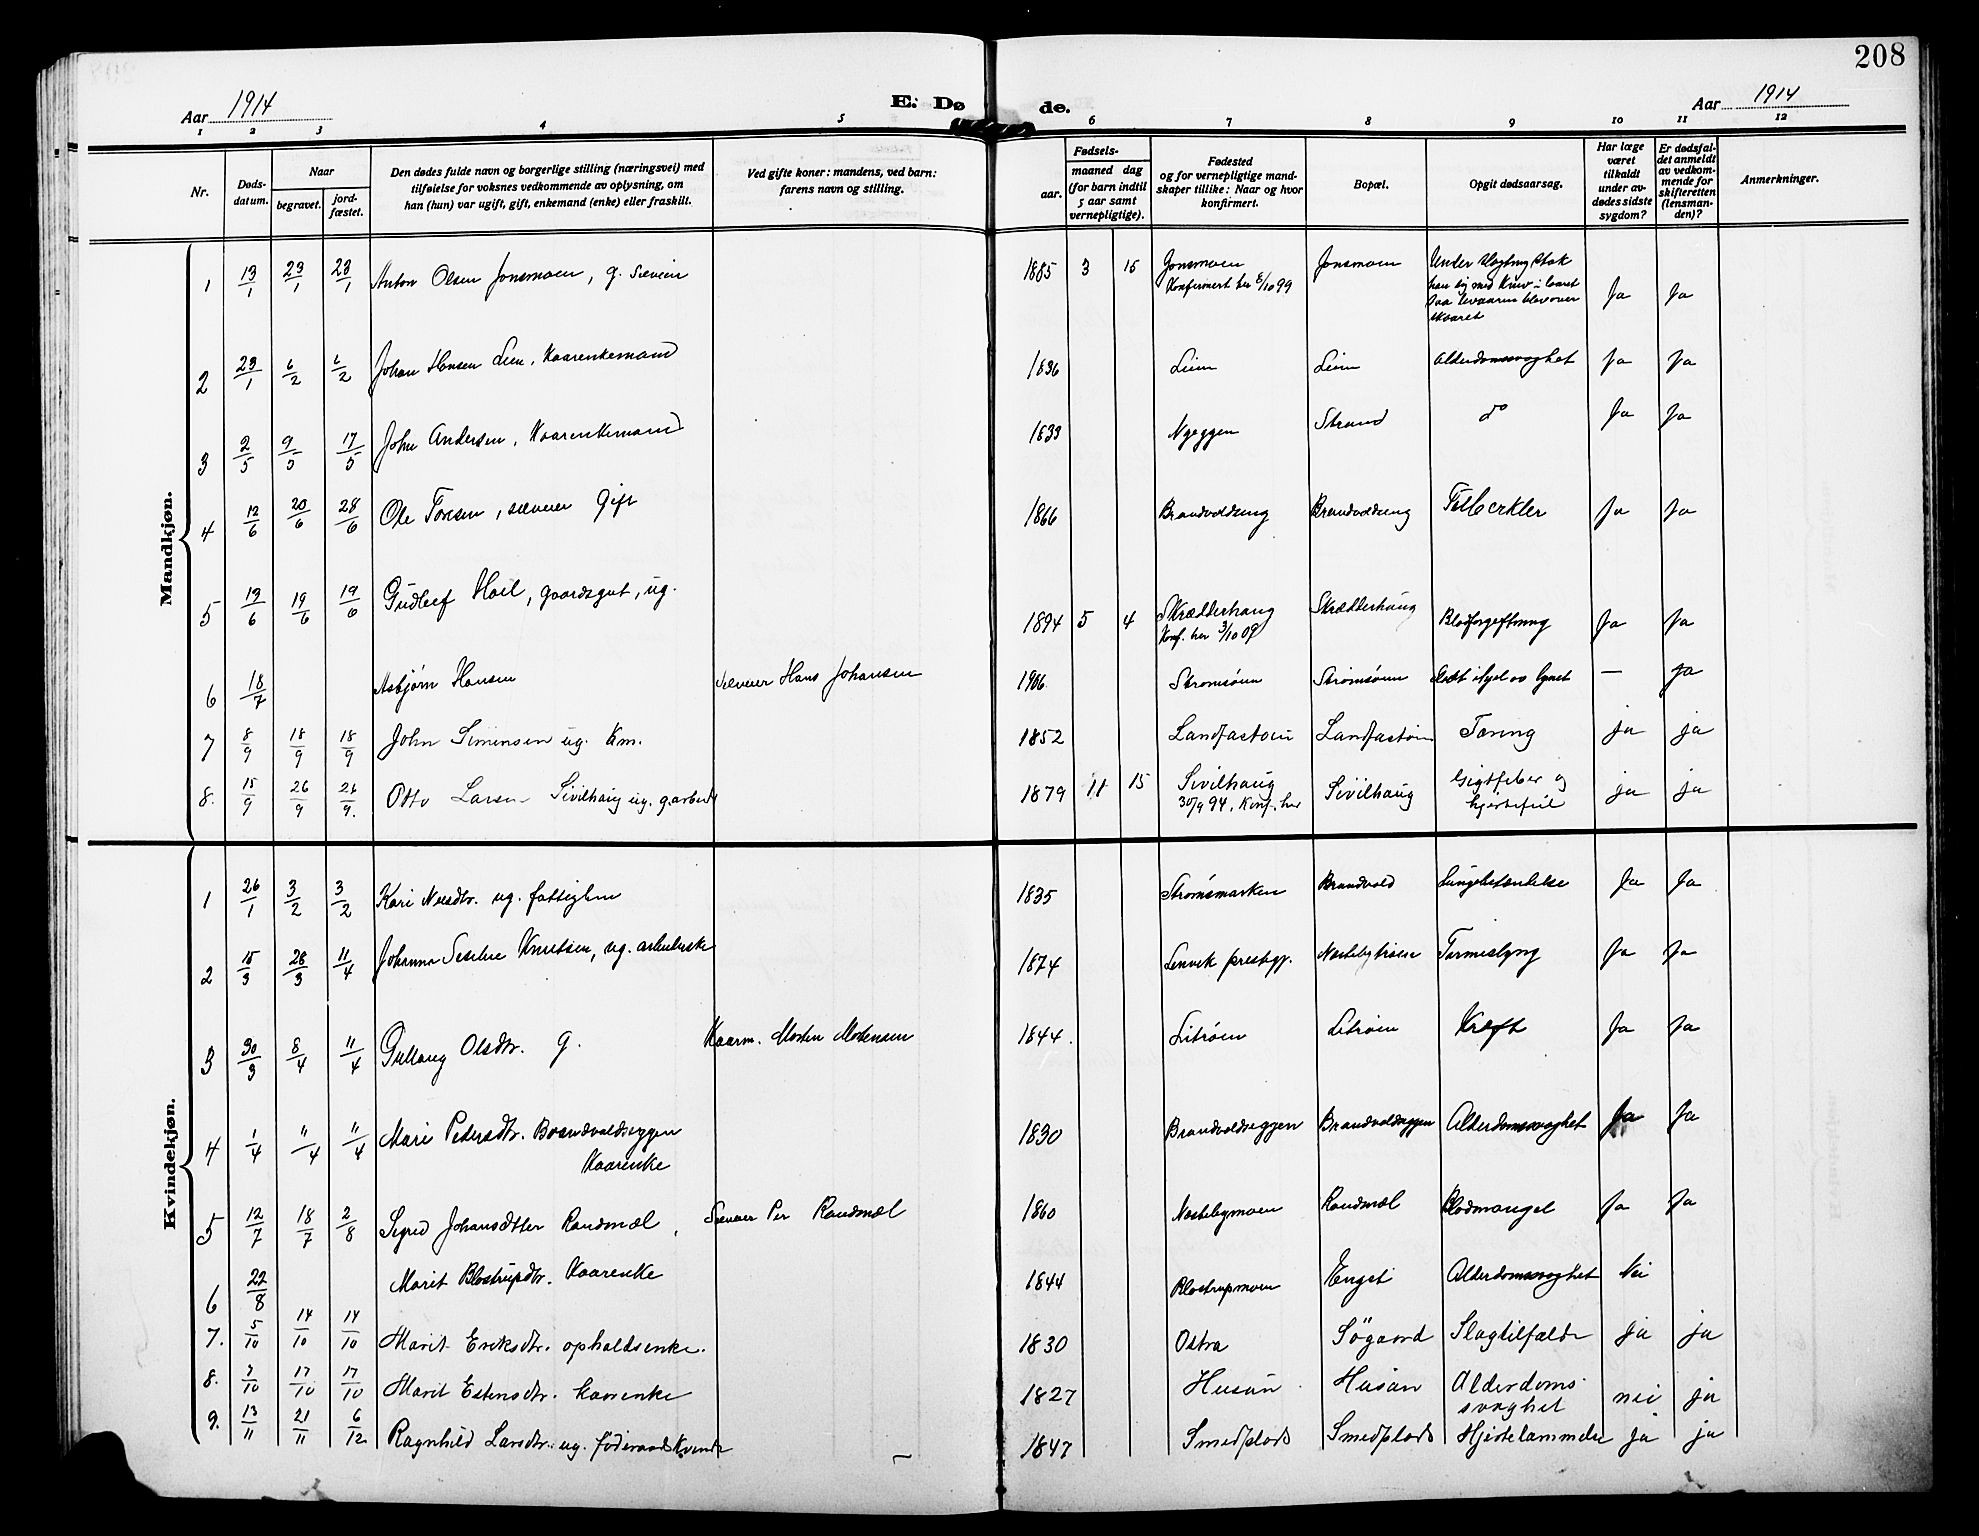 208
Aar 1914 E. Dø de. Aar 1914
1 2 3 4 5 6 7 8 9 10 11 12
Nr. Døds-datum. Naar begravet. jord-fæstet. Den dødes fulde navn og borgerlige stilling (næringsvei) med tilføielse for voksnes vedkommende av oplysning, om han (hun) var ugift, gift, enkemand (enke) eller fraskilt. Ved gifte koner: mandens, ved barn: farens navn og stilling. Fødsels- aar. maaned dag (for barn indtil 5 aar samt vernepligtige). Fødested og for vernepligtige mand-skaper tillike: Naar og hvor konfirmert. Bopæl. Opgit dødsaarsag. Har læge været tilkaldt under av-dødes sidste sygdom? Er dødsfal-det anmeldt av vedkom-mende for skifteretten (lensman-den)? Anmerkninger.
Mandkjøn.
1 13/1 23/1 23/1 Anton Olsen Jonsmoen, g. 1885 3 15 Jonsmoen Jonsmoen Under
Konfirmert her 99 han sig med Kniv i laaret Ja Ja
2 23/1 6/2 6/2 Johan Hansen Kaarenkemand 1836 Alderdomssvaghet Ja Ja
3 2/5 9/5 17/5 John Andersen, Kaarenkemand 1833 Strand do Ja Ja
4 12/6 20/6 28/6 Ole gift 1866 Brandvoldeng Brandvoldeng Ja Ja
5 13/6 19/6 19/6 Gudleif Hoel, gaardsgut, ug. 1894 5 4 Skrædderhaug Skrædderhaug Blodforgiftning Ja Ja
Konf. her 3/10 09
6 18/7 Asbjørn Hansen Hans Johansen 1906 Strømsøien Strømsøien — Ja
7 8/9 18/9 18/9 John Simensen ug. Km. 1852 Landfastøien Landfastøien Tæring ja ja
8. 15/9 26/9 26/9. Otto Larsen Sivilhaug ug. g.arbeid 1879 11 15 Sivilhaug Sivilhaug Gigtfeber og ja ja
30/9 94, Konf. her hjertefeil
Kvindekjøn.
1 26/1 3/2 3/2 Kari Nilsdtr. ug. fattiglem 1835 Strømsmarken Brandvold Lungebetændelse Ja Ja
2 15/3 28/3 11/4 Johanna Knutsen, ug. 1874 Lenvik prestegj. Ja Ja
3 30/3 8/4 11/4 Gullaug Olsdtr. g. Kaarm. Morten Mortensen 1844. Litrøen Litrøen Kræft Ja Ja
4 1/4 11/4 11/4 Mari Pedersdtr. Brandvoldseggen 1830 Brandvoldseggen Brandvoldseggen Alderdomssvaghet Ja Ja
Kaarenke
5 12/7 18/7 2/8 Sigrid Johansdtter Randmæl, Per Randmæl 1860 Nestebymoen Randmæl Blodmangel Ja Ja
6 22/8 Marit Blostrupdtr. Kaarenke 1844 Blostrupmoen Engst Alderdomssvaghet Nei
7. 5/10 14/10 14/10 Marit Eriksdtr. opholdsenke. 1830 Østra Søgaard Slagtilfælde ja ja
8. 7/10 17/10 17/10 Marit Estensdtr. kaarenke 1827 Husan Husan Alderdoms- nei ja
svaghet
9. 13/11 21/11 6/12 Ragnhild Larsdtr. ug. føderaadskvinde 1847 Smedplads Smedplads Hjertelammelse ja ja